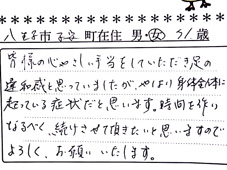 八王子市子安町在住 男・女 51歳
皆様の心やさしい手当をしていただき足の
違和感と思っていましたが、やはり身体全体に
起っている症状だと思います。時間を作り
なるべく、続けさせて頂きたいと思いますので
よろしく、お願いいたします。